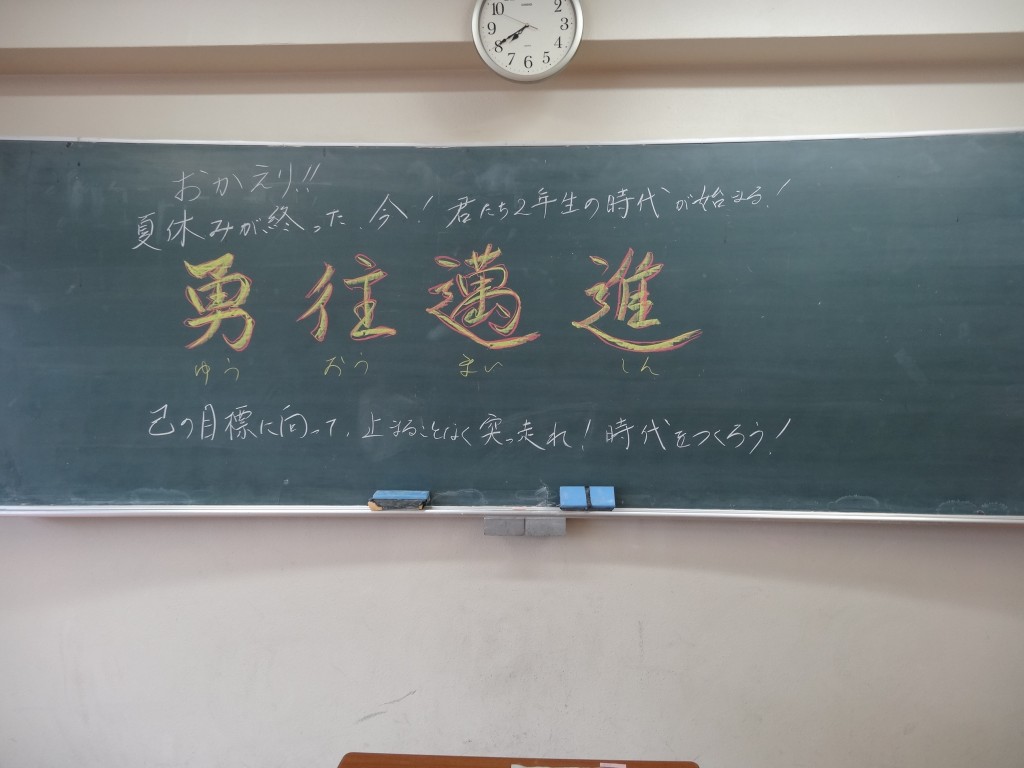 10 2
9 3
8 4
7 6 5
おかえり!!
夏休みが終った.今！君たち2年生の時代が始まる！
勇往邁進
ゆう おう まい しん
己の目標に向って、止まることなく突っ走れ！時代をつくろう！